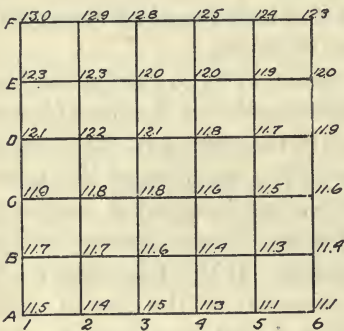 F 13.0 12.9 12.8 12.5 12.4 12.3
E 12.3 12.3 12.0 12.0 11.9 12.0
D 12.1 12.2 12.1 11.8 11.7 11.9
C 11.9 11.8 11.8 11.6 11.5 11.6
B 11.7 11.7 11.6 11.4 11.3 11.4
A 11.5 11.4 11.5 11.3 11.1 11.1
1 2 3 4 5 6